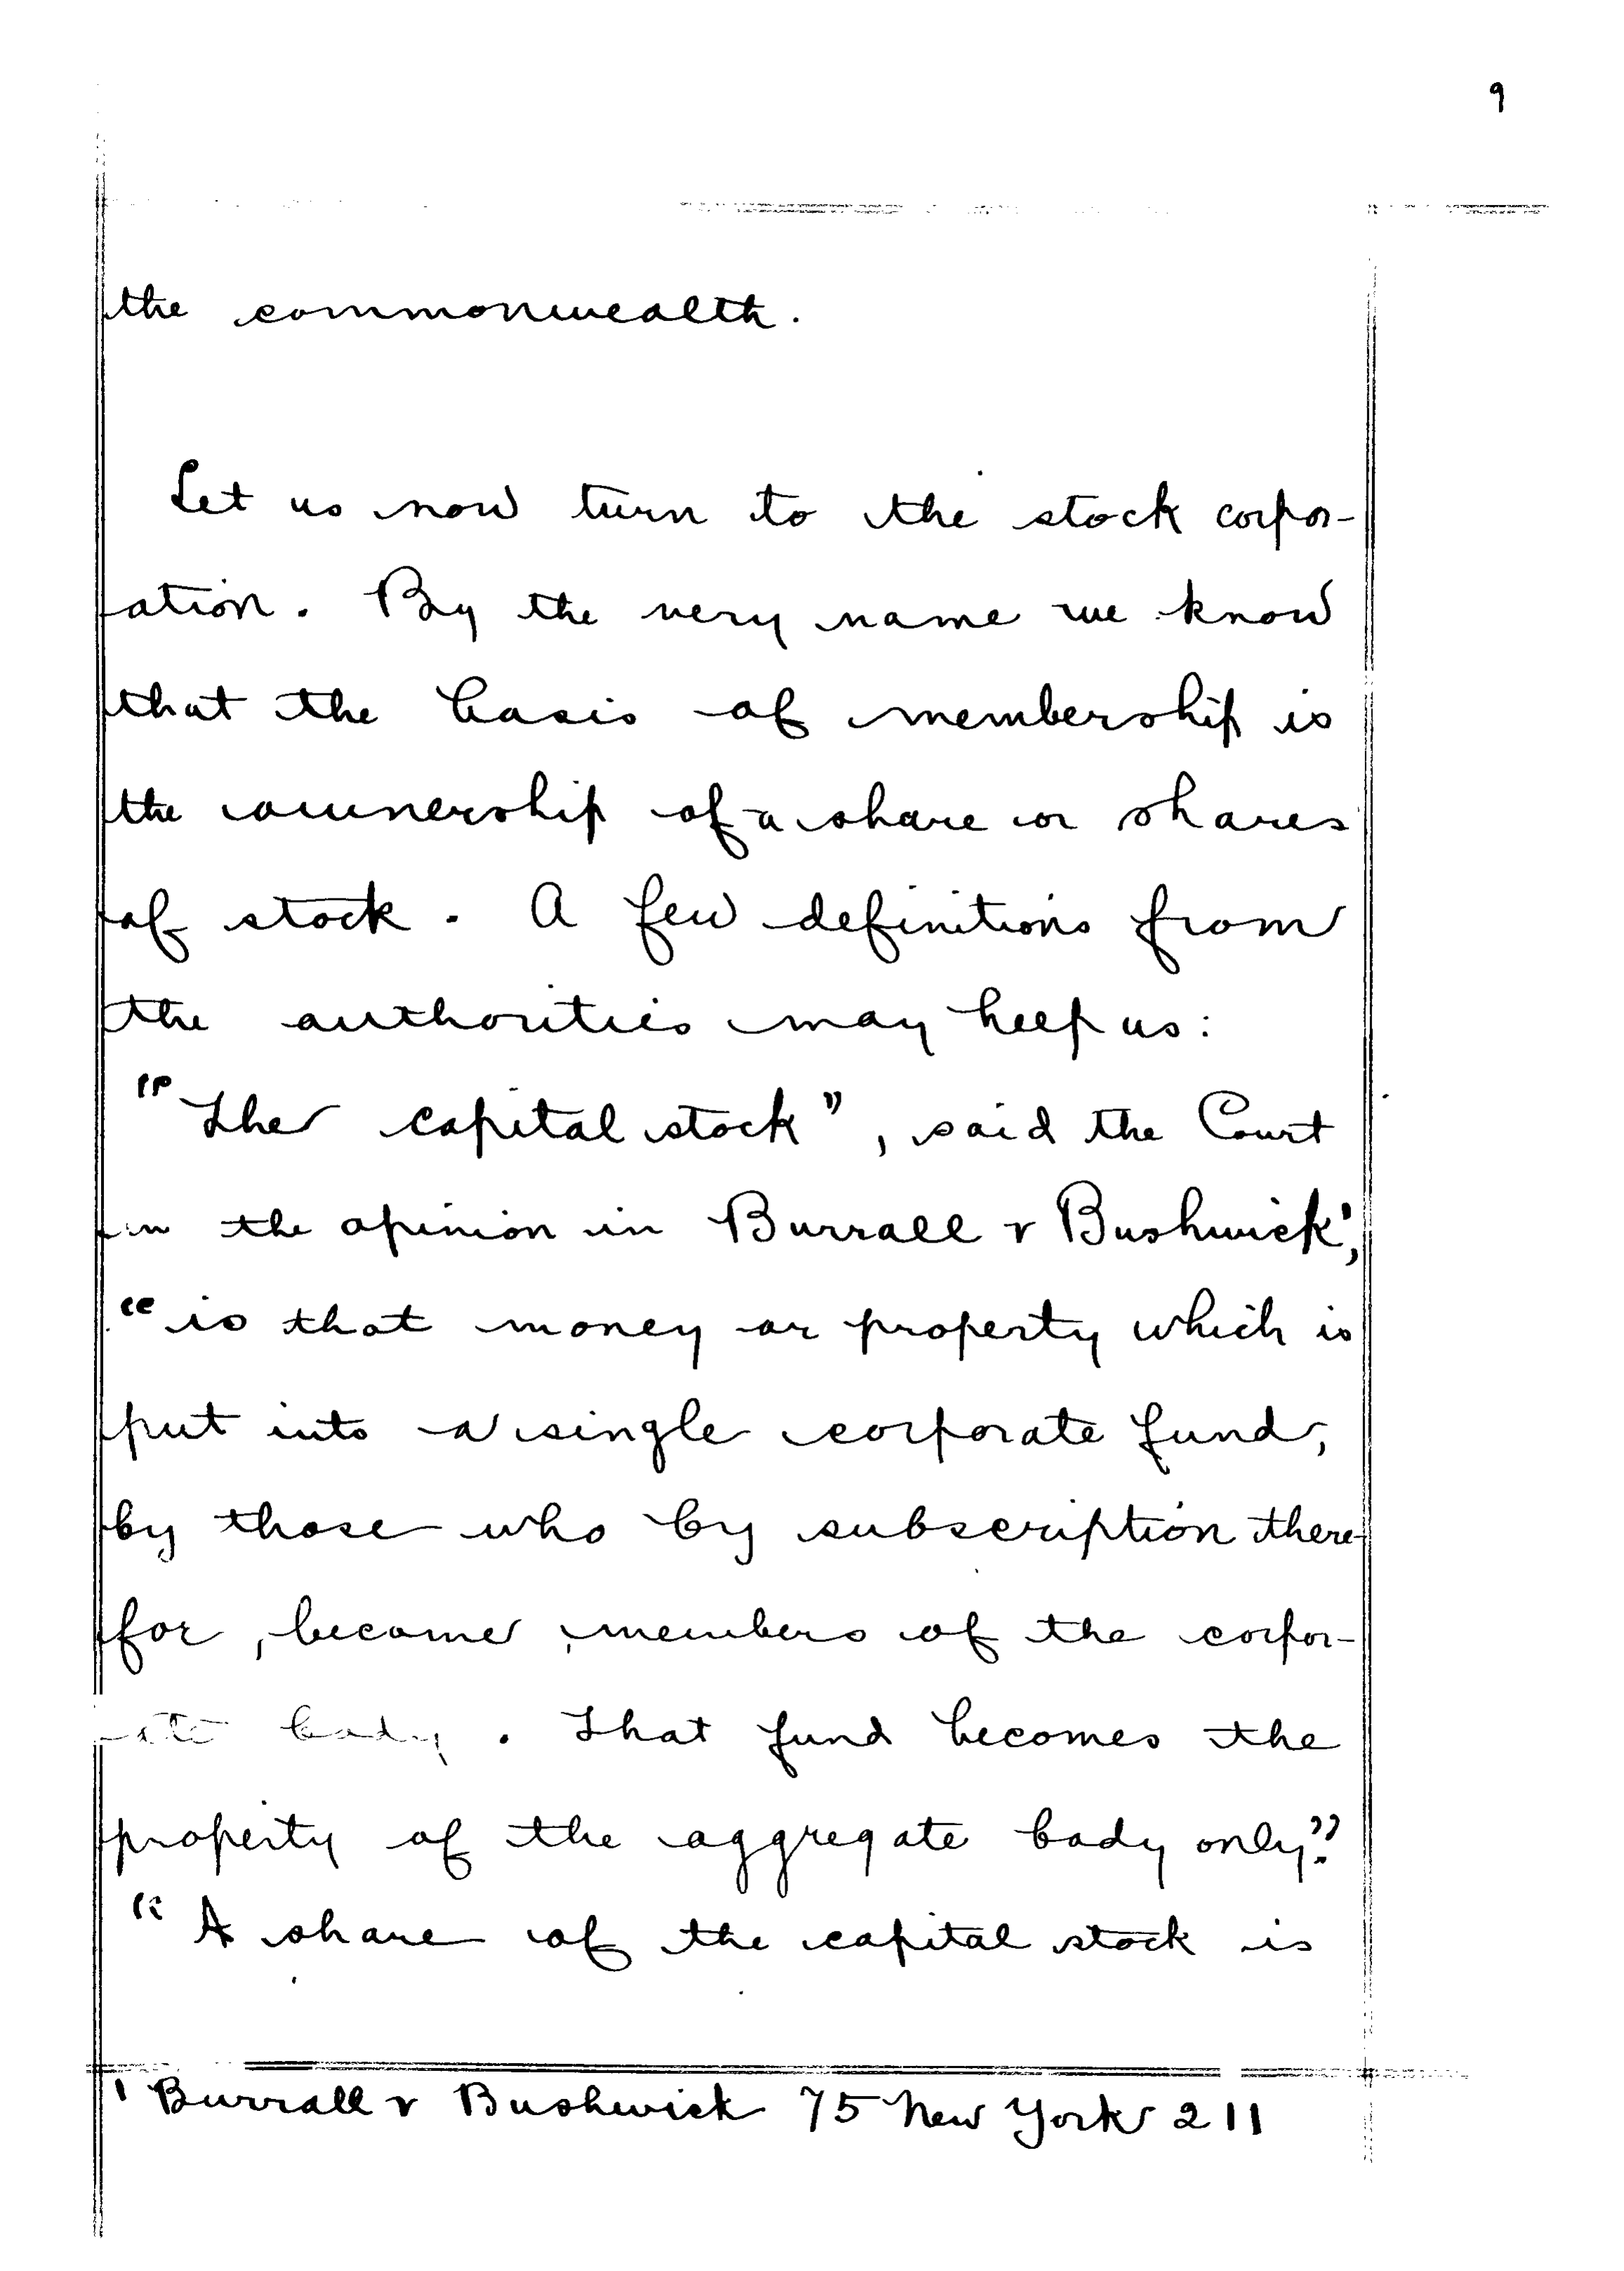 9
the commonwealth.
Let us now turn to the stock corpor-
ation. By the very name we know
that the basis of membership is
the ownership of a share or shares
of stock. A few definitions from
the authorities may help us:
"The capital stock", said the Court
in the opinion in Burrall v Bushwick¹,
"is that money or property which is
put into a single corporate fund,
by those who by subscription there-
for, become members of the corpor-
ate body. That fund becomes the
property of the aggregate body only."
"A share of the capital stock is
¹ Burrall v Bushwick 75 New York 211